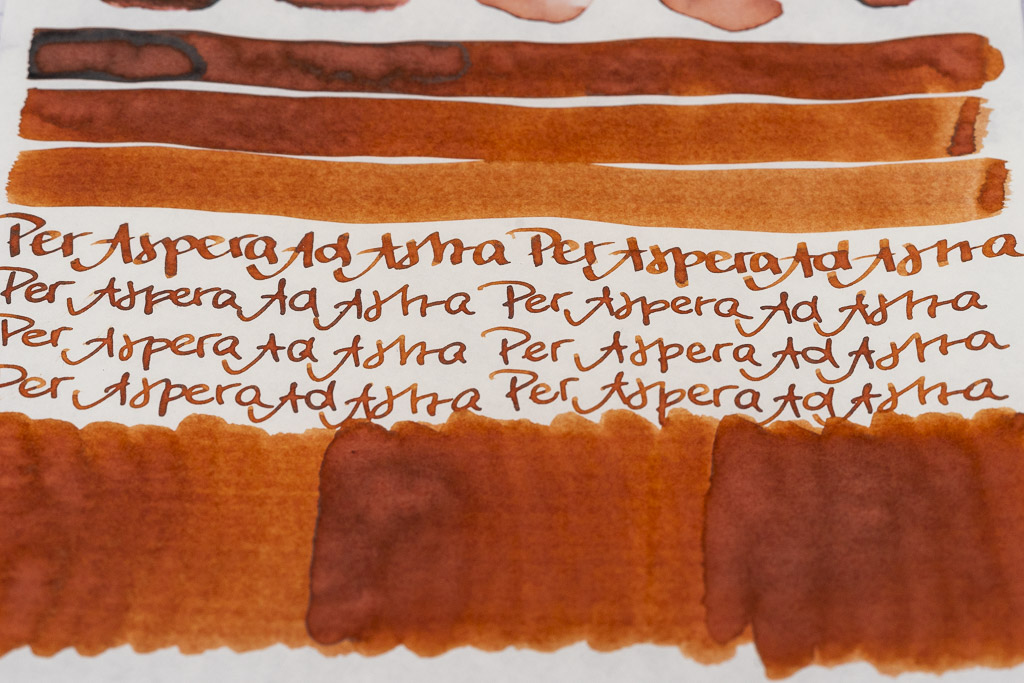 Per Aspera Ad Astra Per Aspera Ad Astra
Per Aspera Ad Astra Per Aspera Ad Astra
Per Aspera Ad Astra Per Aspera Ad Astra
Per Aspera Ad Astra Per Aspera Ad Astra